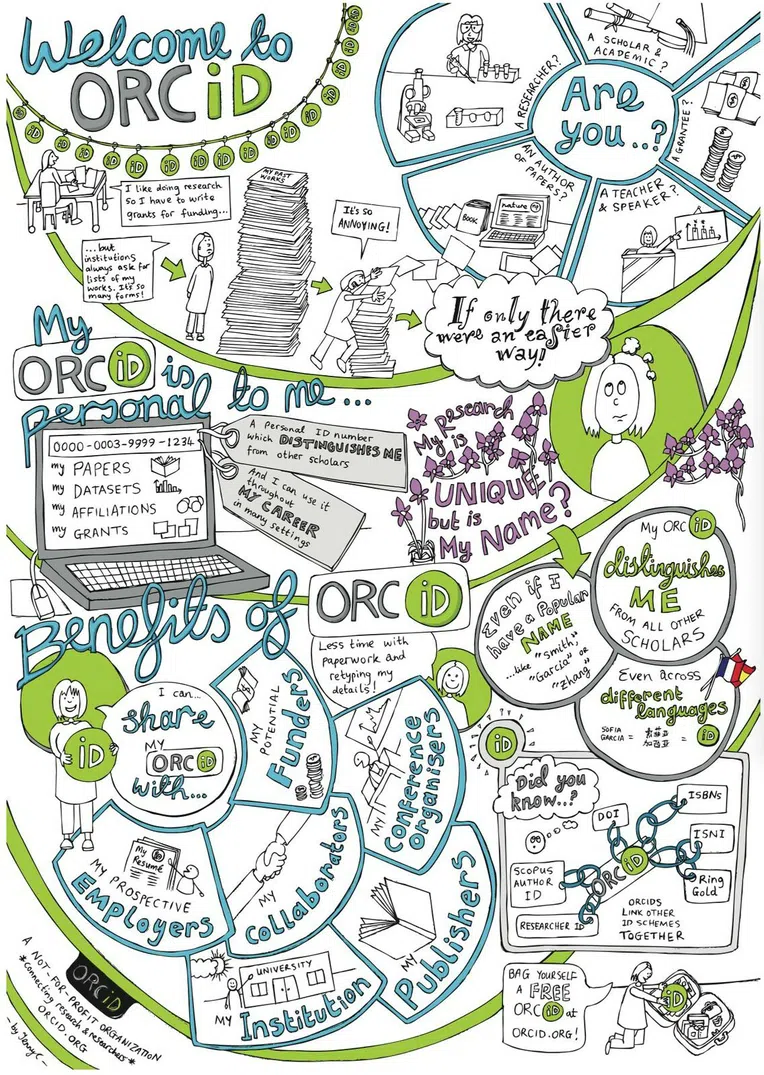 Welcome to
ORCiD
iD iD iD iD iD iD iD iD iD iD iD iD iD iD iD iD
I like doing research
so I have to write
grants for funding...
...but
institutions
always ask for
lists of my
works. It's so
many forms!
MY PAST
WORKS
IT'S SO
ANNOYING!
If only there
were an easier
way!
Are
you...?
A RESEARCHER?
A SCHOLAR &
ACADEMIC?
A GRANTEE?
A TEACHER
& SPEAKER?
AN AUTHOR
OF PAPERS?
BOOK
nature
My
ORCiD is
personal to me...
0000-0003-9999-1234
my PAPERS
my DATASETS
my AFFILIATIONS
my GRANTS
A Personal ID number
which DISTINGUISHES ME
from other scholars
And I can use it
throughout
MY CAREER
in many settings
My Research
is
UNIQUE
but is
My Name?
Even if I
have a Popular
NAME
...like "Smith",
"Garcia" or
"Zhang"
My ORCiD
distinguishes
ME
FROM ALL OTHER
SCHOLARS
Even across
different
languages
SOFIA
GARCIA =
= iD
Benefits of
ORCiD
Less time with
paperwork and
retyping my
details!
iD
I can...
share
MY
ORCiD
with...
MY
POTENTIAL
Funders
MY
Conference
Organisers
MY
Collaborators
My
Resumé
MY PROSPECTIVE
Employers
MY
Publishers
UNIVERSITY
MY Institution
iD
Did you
know..?
DOI
ISBNs
ISNI
Ring
Gold
SCOPUS
AUTHOR
ID
RESEARCHER ID
ORCiD
ORCIDS
LINK OTHER
ID SCHEMES
TOGETHER
BAG YOURSELF
A FREE
ORCiD at
ORCID.ORG!
iD
ORCiD
A NOT-FOR-PROFIT ORGANIZATION
*connecting research & researchers*
ORCID.ORG
- by JennyC -